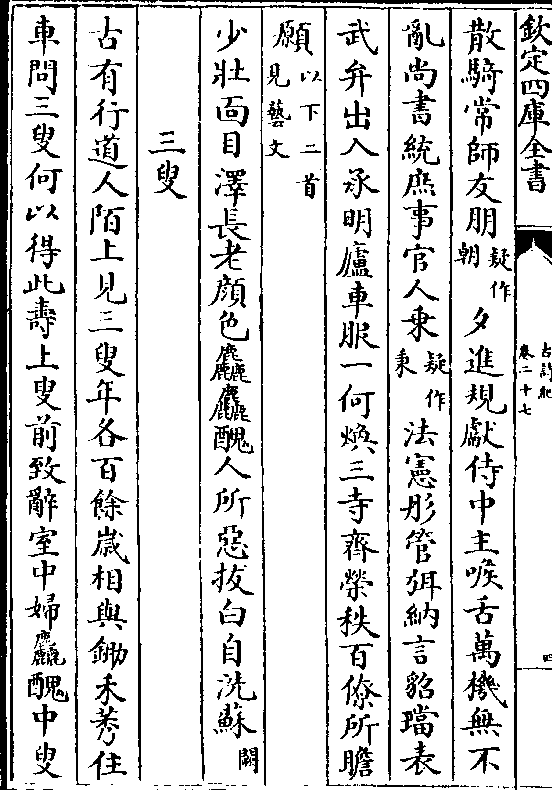 欽定四庫全書
古詩紀
卷二十七
四
散騎常師友朋疑作朝夕進規獻侍中主喉舌萬機無不
亂尚書統庶事官人乗疑作秉法憲彤管弭納言貂璫表
武弁出入承明廬車服一何煥三寺齊榮秩百僚所瞻
願以下二首見藝文
少壯靣目澤長老顔色麤麤醜人所惡拔白自洗蘇闕
三叟
古有行道人陌上見三叟年各百餘嵗相與鋤禾莠住
車問三叟何以得此壽上叟前致辭室中婦麤醜中叟